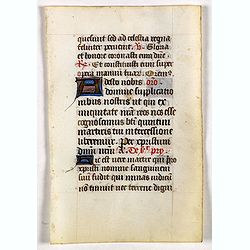 quesiuit sed ad celestia regna
feliciter peruenit. Gloria
et honore coronasti eum dne
Et constituisti eum super
opera manuum tuarum Oremus
Adesto nobis
domine supplicatio
nibus nostris ut qui ex
iniquitate nos esse
cognoscimus bti quintini
martiris tui intercessione
liberemur. Per xpristum
dnm nrm
Hic est vere martir qui pro
xpristi nomine sanguinem
suum fudit qui minas iudicum
no timuit nec terrene digni